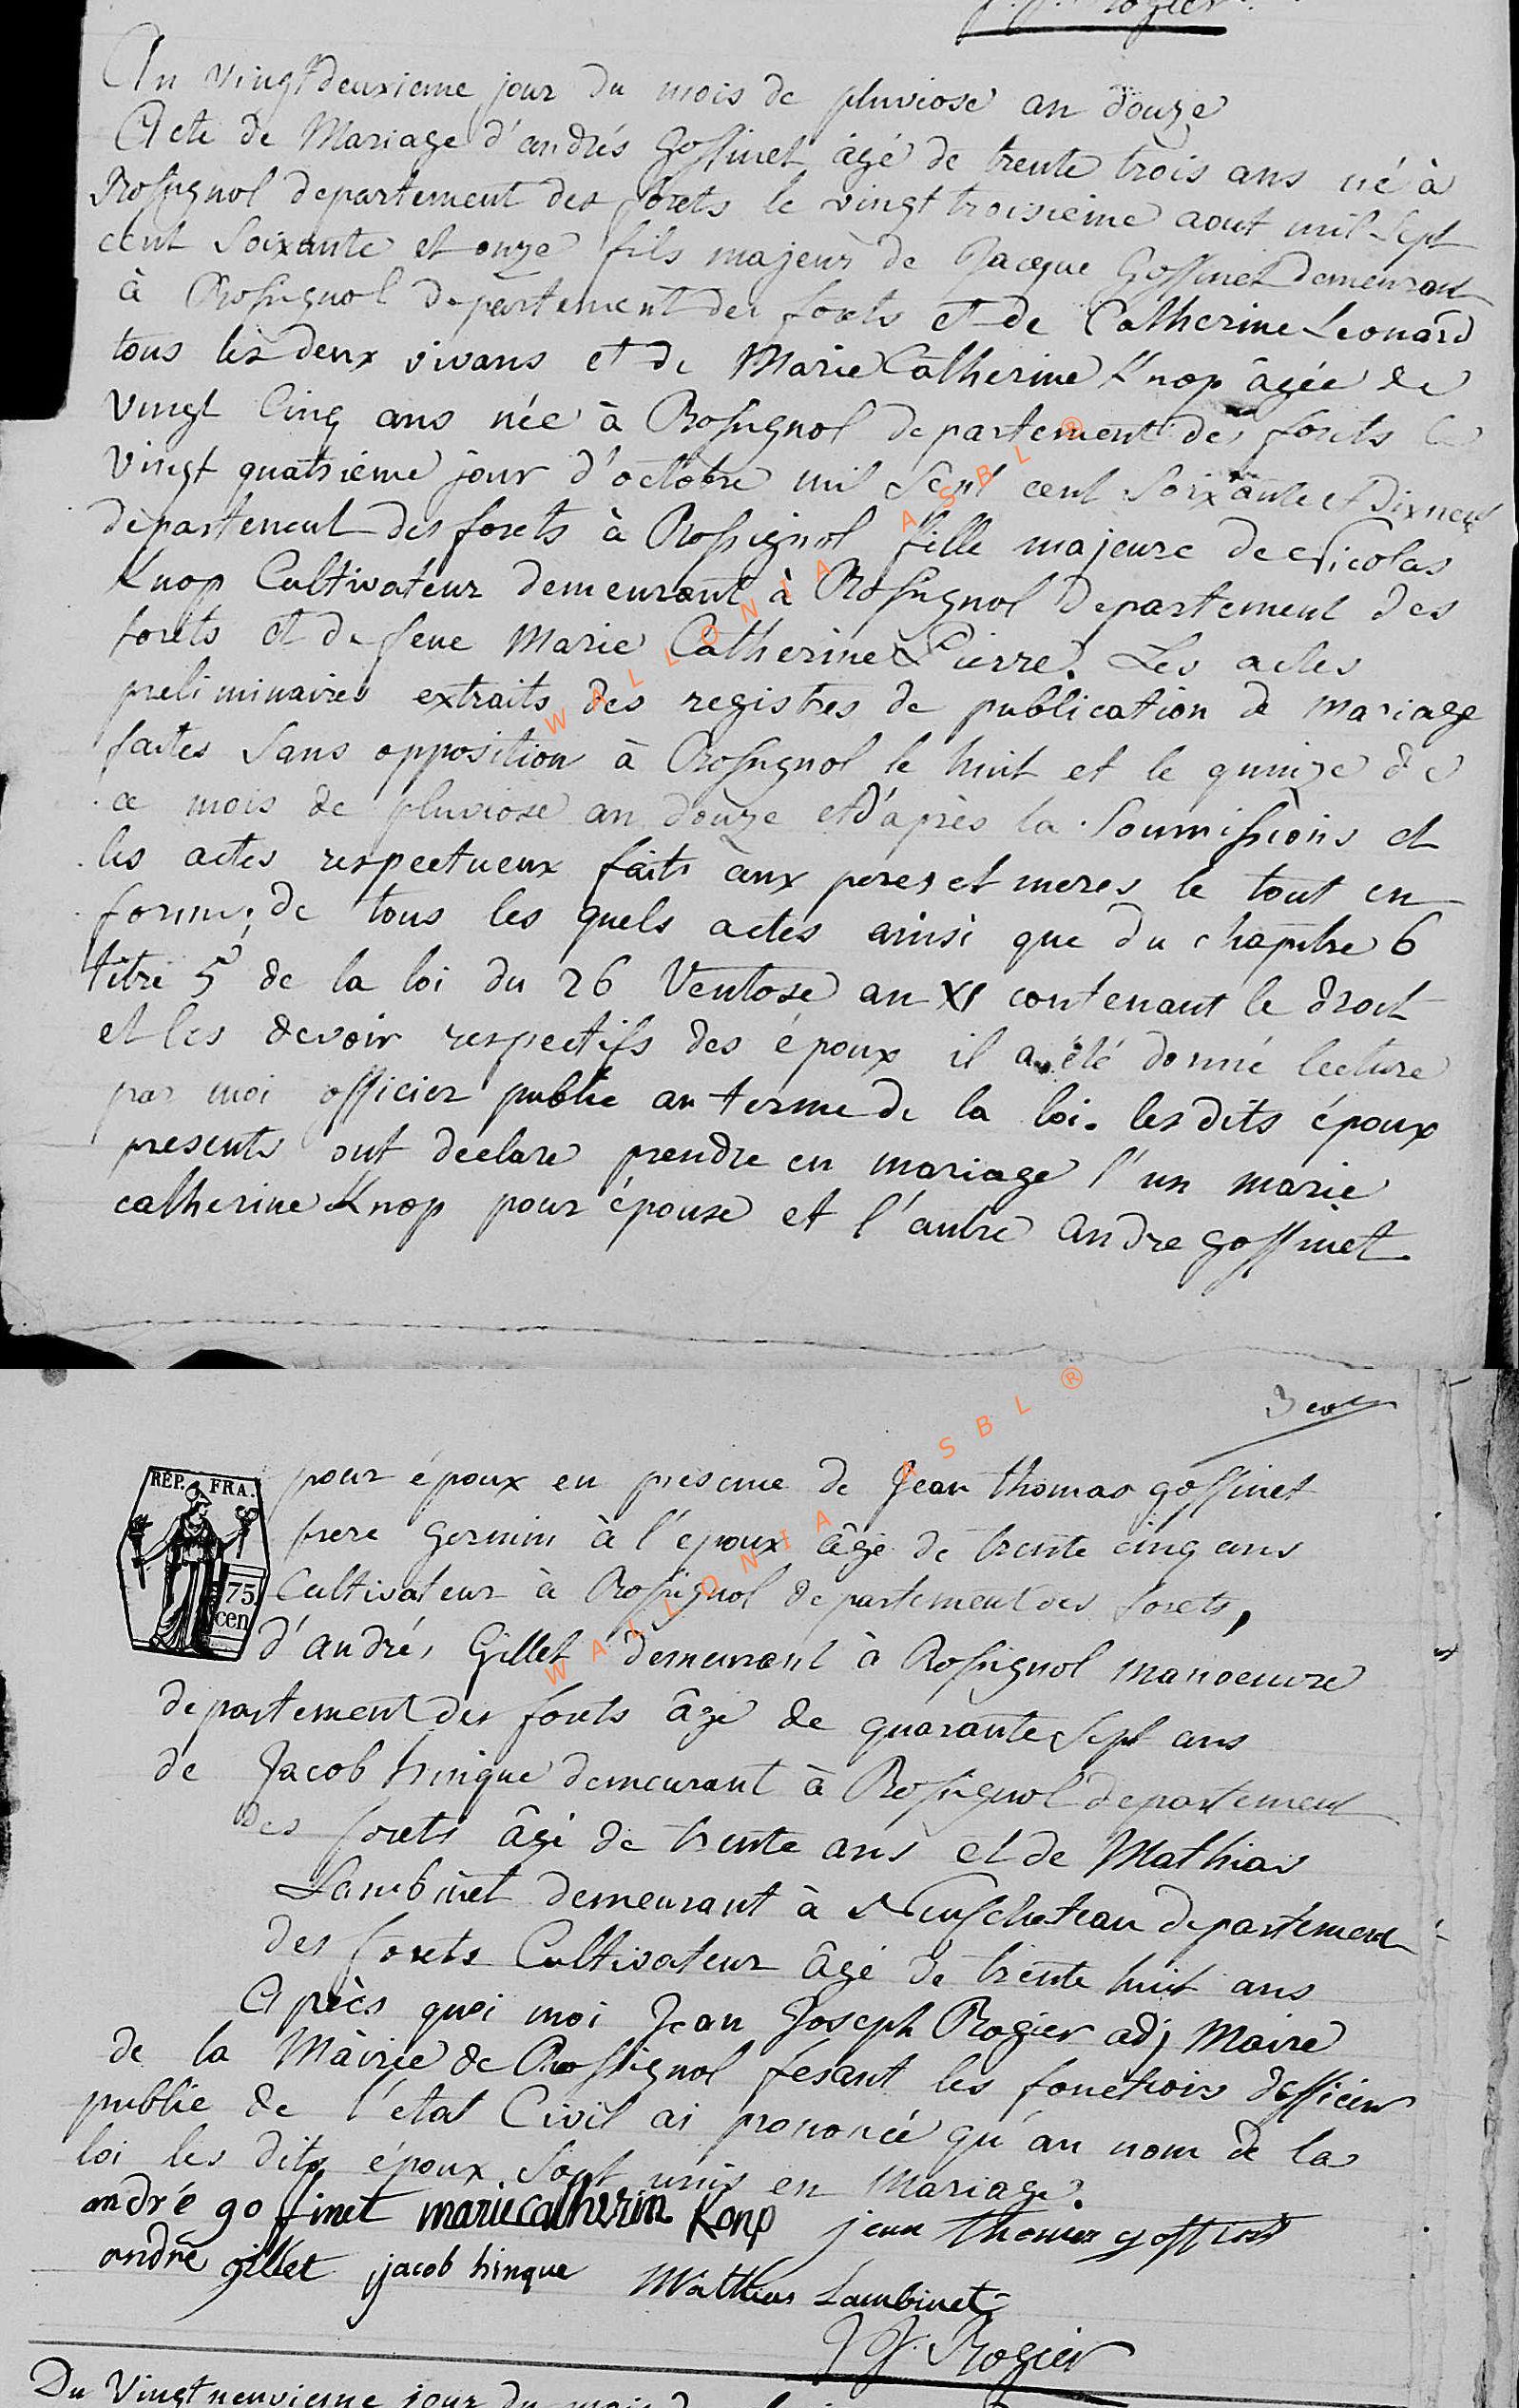 J. J. Rogier
An vingt deuxieme jour du mois de pluviose an douze
Acte de Mariage d'andrés Goffinet âgé de trente trois ans né à
Rossignol departement des forets le vingt troisieme aout mil Sept
cent Soixante et onze fils majeur de Jacque Goffinet demeurant
à Rossignol departement des forets et de Catherine Leonard
tous les deux vivans et de Marie Catherine Knop âgée de
vingt Cinq ans née à Rossignol departement des forets le
vingt quatrième jour d'octobre mil Sept cent Soixante et Dixneuf
departement des forets à Rossignol fille majeure de Nicolas
Knop Cultivateur demeurant à Rossignol departement des
forets et de feue Marie Catherine Pierre. Les actes
preliminaires extraits des registres de publication de mariage
faites Sans opposition à Rossignol le huit et le quinze de
ce mois de pluviose an douze et d'après la Soumissions et
les actes respectueux faits aux peres et meres le tout en
forme; de tous les quels actes ainsi que du chapitre 6
titre 5 de la loi du 26 Ventose an XI contenant le droit
et les devoir respectifs des époux il a été donné lecture
par moi officier public au terme de la loi. les dits époux
presents ont declare prendre en mariage l'un marie
catherine Knop pour épouse et l'autre andre goffinet
pour époux en presence de Jean thomas goffinet
frere germin à l'epoux âgé de trente cinq ans
Cultivateur à Rossignol departement des forets,
d'andrés Gillet demeurant à Rossignol manoeuvre
departement des forets âgé de quarante Sept ans
de Jacob hinque demeurant à Rossignol departement
des forets âgé de trente ans et de Mathias
Lambinet demeurant à Neufchateau departement
des forets Cultivateur âgé de trente huit ans
Après quoi moi Jean Joseph Rogier adj Maire
de la Mairie de Rossignol fesant les fonctions dofficier
public de l'etat Civil ai prononcé qu'au nom de la
loi les dits époux Sont unis en Mariage.
andré goffinet marie catherin Konp jean thomas goffinet
andré gillet jacob hinque Mathias Lambinet
J J. Rogier
Du Vingt neuvieme jour du mois
REP. FRA.
75
cen
WALLONIA ASBL ®
WALLONIA ASBL ®